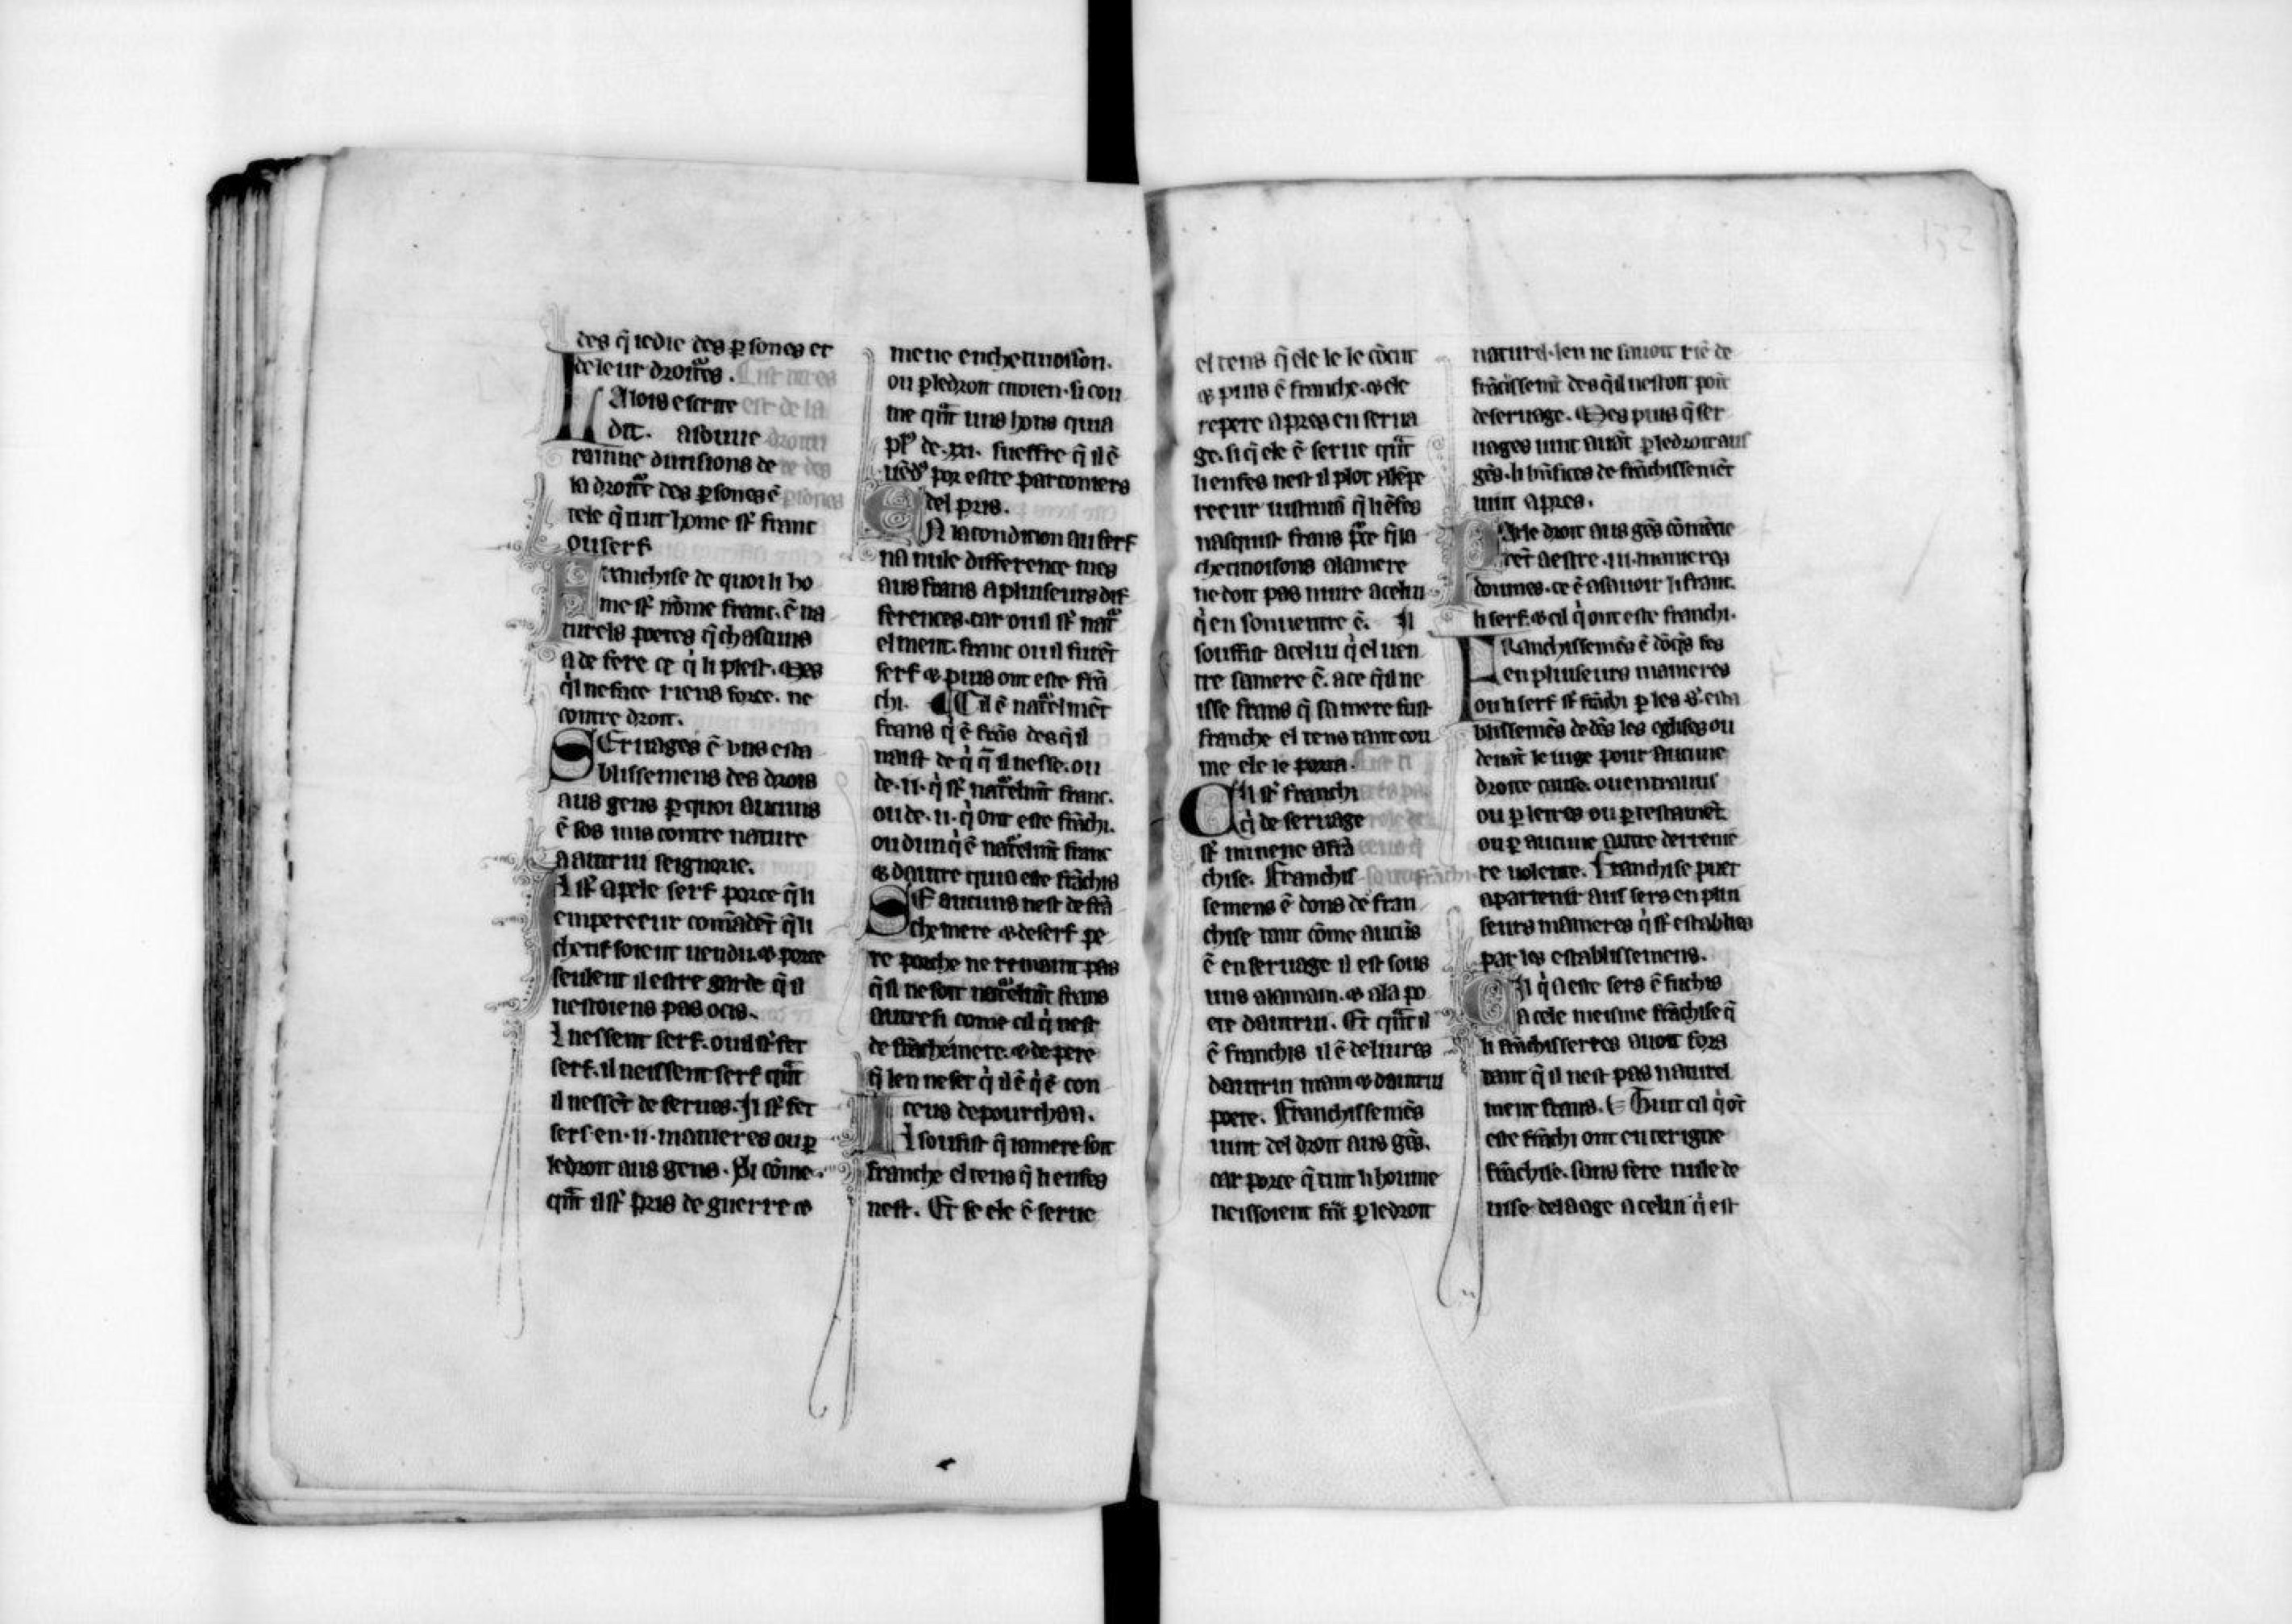 des q̃ iedie des ꝑsones et
de leur droitres. Cist titres
LA lois escrite est de la
dit. a souue droitu
rainne diuisions de te des
la droitẽ des ꝑsones ẽ ꝑsones
tele q̃ tuit home st̃ franc
ou serf
Franchise de quoi li ho
me st̃ nõme franc. ẽ na
turels poetes q̃ chascuns
a de fere ce q̃ li plest. Mes
q̃l ne face riens force. ne
contre droit.
SEruages ẽ uns esta
blissemens des drois
aus gens ꝑ quoi aucuns
ẽ sos mis contre nature
a autrui seignorie.
Il st̃ apele serf porce q̃ li
empereeur comãdẽt q̃ li
chetif soient uendu. ⁊ porce
seulent il estre garde q̃ il
nestoiens pas ocis.
I nessent serf. ou il st̃ fet
serf. il neissent serf qñt
il nessẽt de serues. Il st̃ fet
serf en .ii. manieres ou ꝑ
le droit aus gens. Si cõme
qñt il st̃ pris de guerre ⁊
mene en chetiuoison.
ou ꝑ le droit citoien. si cou
me qñt uns hons qui a
pl9 de .xx. sueffre q̃ il ẽ
uẽd9 por estre parconiers
del pris.
EN la condition au serf
na nule difference mes
aus frans a pluseurs dif
ferences. car ou il st̃ nat̃
elment. franc ou il furẽt
serf ⁊ puis ont este frã
chi. ¶ Cil ẽ nat̃elmẽt
frans q̃ ẽ frãs des q̃ il
naist de q̃ q̃ il nesse. ou
de .ii. q̃ st̃ nat̃elmt̃ franc.
ou de .ii. q̃ ont este frãchi.
ou dun q̃ ẽ nat̃elmt̃ franc
⁊ dautre qui a este frãchis
SE aucuns nest de frã
che mere ⁊ de serf pe
re porche ne remaint pas
q̃ il ne soit nat̃elmt̃ frans
autresi come cil q̃ nest
de frãche mere. ⁊ de pere
q̃ len ne set q̃ il ẽ q̃ ẽ con
ceus depourchan.
Il soufist q̃ la mere soit
franche el tens q̃ li enfes
nest. Et se ele ẽ serue
el tens q̃ ele le cõcut
⁊ puis ẽ franche. ⁊ ele
repere apres en serua
ge. si q̃ ele ẽ serue qñt
li enfes nest il plot alẽpe
reeur iustiniã q̃ li ẽfes
nasquist frans
chetiuoisons a la mere
ne doit pas nuire a celui
q̃ en son uentre ẽ. Il
souffist a celui q̃ el uen
tre sa mere ẽ. a ce q̃ il ne
isse frans q̃ sa mere fust
franche el tens tant cou
me ele le porta. Cist ti
Cil st̃ franchi
q̃ de seruage
st̃ mi a frã
chise. Franchis
semens ẽ dons de fran
chise tant cõme aucũs
ẽ en seruage il est sous
uns a la main. ⁊ a la po
ete dautrui. Et qñt il
ẽ franchis il ẽ deliures
dautrui main ⁊ dautrui
poete. Franchissemẽs
uint del droit aus gẽs.
car porce q̃ tuit li homme
neissoient frãc ꝑ le droit
132
naturel. len ne sauoit riẽ de
frãcissemt̃ des q̃ il nestoit poit̃
de seruage. Mes puis q̃ ser
uages uint auãt ꝑ le droit aus
gẽs. li bñfices de frãchissemẽt
uint apres.
PAr le droit aus gẽs cõmẽcie
rẽt a estre .iii. manieres
dõmes. ce ẽ asauoir li franc.
li serf. ⁊ cil q̃ ont este franchi.
FRanchissemẽs ẽ dõq̃s fes
en pluseurs manieres
ou li serf st̃ frãchi ꝑ les s̃. esta
blissemẽs dedẽs les eglises ou
deuãt le iuge pour aucune
droite cause. ou entre amis
ou ꝑ letres ou ꝑ testamẽt.
ou ꝑ aucune autre derrenie
re uolente. Franchise puet
apartenir aus sers en plu
seurs manieres q̃ st̃ establies
par les establissemens.
Cil q̃ a este sers ẽ frãchis
a cele meisme frãchise q̃
li frãchisserres auoit fors
tant q̃ il nest pas naturel
ment frans. Tuit cil q̃ õt
este frãchi ont enterigne
frãchise. sans fere nule de
uise de laage a celui q̃ est